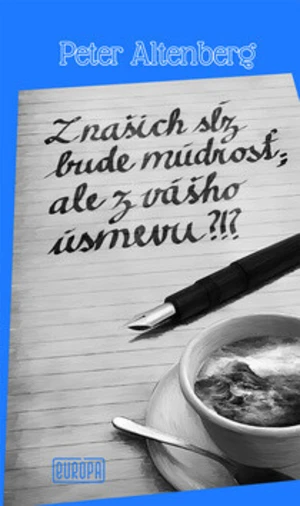 Peter Altenberg
Z našich sĺz
bude múdrosť,
ale z vášho
úsmevu?!?
EURÓPA